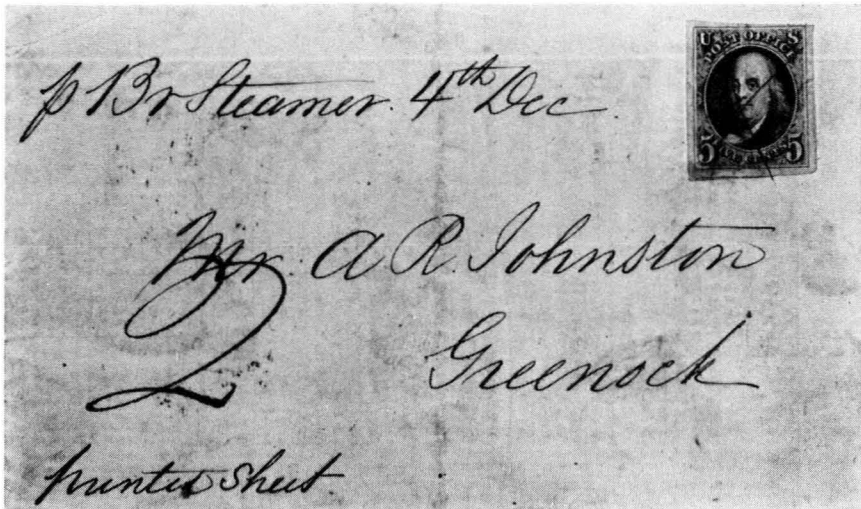 p Br Steamer. 4th Dec
U S
POST OFFICE
5 FIVE CENTS 5
Mr. A R. Johnston
2
Greenock
printed sheet